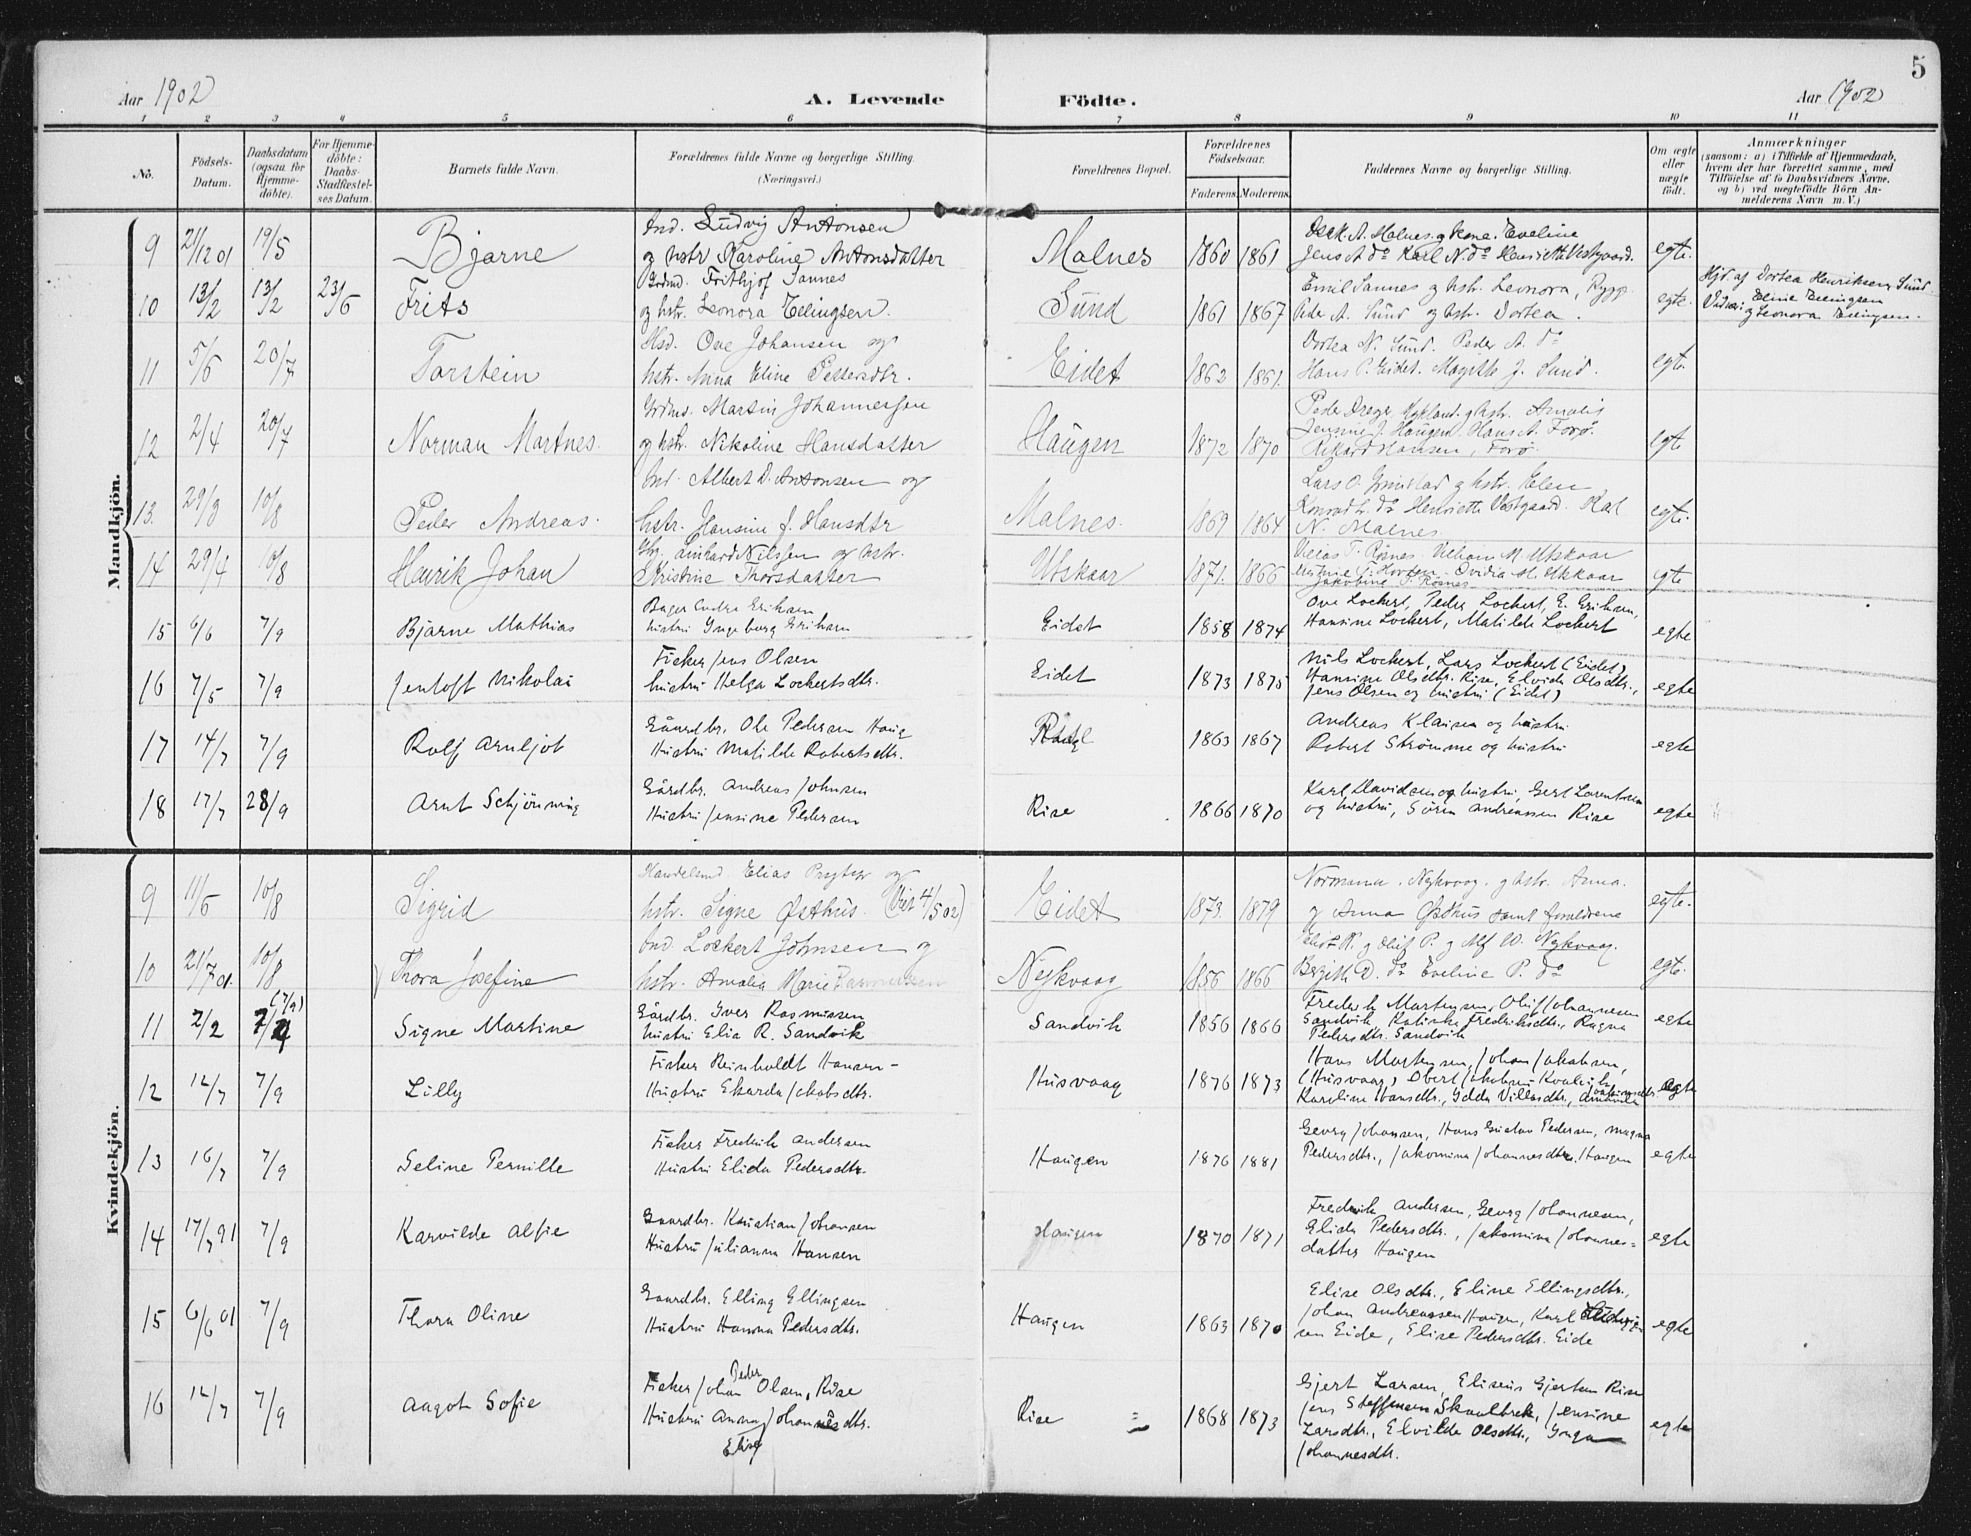 5
Aar 1902 A. Levende Födte. Aar 1902
1 2 3 4 5 6 7 8 9 10 11
No.
Födsels-
Datum.
Daabsdatum
(ogsaa for
Hjemme-
döbte).
For Hjemme-
döbte:
Daabs-
Stadfæstel-
ses Datum.
Barnets fulde Navn.
Forældrenes fulde Navne og borgerlige Stilling.
(Næringsvei.)
Forældrenes Bopæl.
Forældrenes
Födselsaar.
Faderens. Moderens.
Faddernes Navne og borgerlige Stilling.
Om ægte
eller
uægte
födt.
Anmærkninger
(saasom: a) i Tilfælde af Hjemmedaab,
hvem der har forrettet samme, med
Tilföielse af to Daabsvidners Navne,
og b) ved uægtefödte Börn An-
melderens Navn m. V.)
Mandkjön.
9 21/12 01 19/5 Bjarne Ind. Ludvig Antonsen
og hstr Karoline Antonsdatter
Malnes 1860 1861 A. Malnes Eveline
Jens A do Karl N. do Henriette Vestgaard. egte.
10 13/2 13/2 23/5 Frits Frithjof Sannes
og hstr. Leonora Ellingsen.
Sund 1861 1867 Emil Sannes og hstr. Leonora,
Peder A. Sund og hstr. Dortea. egte.
Hjd. af Dortea Henriksen, Sund
Vidner: Eline Ellingsen
og Leonora Ellingsen.
11 5/6 20/7 Torstein Hsd. Ove Johansen og
hstr. Anna Eline Pettersdtr.
Eidet 1862 1861. Dortea N. Sund. Peder A. do
Hans P. Eidet. Magitte J. Sund. egte.
12 2/4 20/7 Norman Martnes. Martin Johannessen
og hstr. Nikoline Hansdatter
Haugen 1872 1870 Peder Nykland og hstr. Amalie
Jensine J. Haugen, Hans A. Forø.
Rikard Hansen, Forø. egte
13. 29/3 10/8 Peder Andreas. Ind. Albert D. Antonsen og
hstr. Hansine J. Hansdtr
Malnes. 1869 1864 Lars O. Grimstad og hstr. Elen
Konrad L. do Henriette Vestgaard. Karl
N. Malnes egte.
14 29/4 10/8 Henrik Johan Linhard Nilssen og hstr.
Kristine Thorsdatter
Utskaar 1871. 1866 T. Rønes. M. Utskaar
Ovidia M. Utskaar
Jakobine Rønes egte
15 6/6 7/9 Bjarne Mathias Bager Endre Eriksen
hustru Ingeborg Eriksen
Eidet 1858 1874 Ove Lockert, Peder Lockert, E. Eriksen,
Hansine Lockert, Matilde Lockert egte
16 7/5 7/9 Jentoft Nikolai Fisker Jens Olsen
hustru Helga Lockertsdtr.
Eidet 1873 1875 Nils Lockert, Lars Lockert (Eidet)
Hansine Olsdtr. Rise, Elvida Olsdtr.,
Jens Olsen og hustru (Eidet) egte
17 14/7 7/9 Rolf Arnljot Gaardbr. Ole Pedersen Haug
Hustru Matilde Robertsdtr.
1863 1867 Andreas Klausen og hustru
Robert Strømme og hustru egte
18 17/7 28/9 Arnt Schjönning Gårdbr. Andreas Johnsen
Hustru Jensine Pedersen
Rise 1866 1870 Karl Davidsen og hustru, Gert Lorentsen
og hustru, Sören Andreassen Rise egte
Kvindekjön.
9 11/5 10/8 Sigrid Handelsmd. Elias og
hstr. Signe Østhus. (Viet 4/5 02)
Eidet 1873. 1879 Normann. Nykvaag. og hstr. Anna.
og Anna Østhus samt forældrene egte.
10 21/7 01. 10/8 Thora Josefine Ind. Lockert Johnsen og
hstr. Amalia Marie Rasmussen
Nykvaag 1856 1866 Nykvaag.
Bergith D. do Eveline P. do egte.
11 2/2 (7/9) Signe Martine Gårdbr. Iver Rasmussen
hustru Elia R. Sandvik
Sandvik 1856 1866 Fredrik Martensen, Oluf Johannesen
Sandvik Fredriksdtr., Ragna
Pedersdtr. Sandvik egte
12 12/7 7/9 Lilly Fisker Reinholdt Hansen-
Hustru Ekarda Jakobsdtr.
Husvaag 1876 1873 Hans Martensen, Johan Jakobsen,
(Husvaag) Obert Jakobsen
Karoline Hansdtr., Gdda Villasdtr., egte
13 16/7 7/9 Seline Pernille Fisker Fredrik Andersen
Hustru Elida Pedersdtr.
Haugen 1876 1881 Georg Johansen, Hans Gustav Pedersen, Magna
Pedersdtr., Jakomina Johannesdtr. Haugen egte
14 17/7 91 7/9 Karvilde Alfie Gaardbr. Kristian Johansen
Hustru Julianna Hansen
Haugen 1870 1871 Fredrik Andersen, Georg Johannesen,
Elida Pedersdtr., Jakomina Johannes=
datter Haugen egte
15 6/6 01 7/9 Thora Oline Gaardbr. Elling Ellingsen
Hustru Hanna Pedersdtr.
Haugen 1863 1870 Elise Olsdtr., Eline Ellingsdtr.,
Johan Andreassen Haugen, Karl
sen Eide, Elise Pedersdtr. Eide egte
16 12/7 7/9 Aagot Sofie Fisker Johan Peder Olsen, Rise
Hustru Anna Johannesdtr.
Elise
Rise 1868 1873 Gjert Larsen, Eliseus Gjertsen Rise
Jens Steffensen Skaalbrek, Jensine
Larsdtr., Elvilde Olsdtr., Inga
Johannesdtr. egte